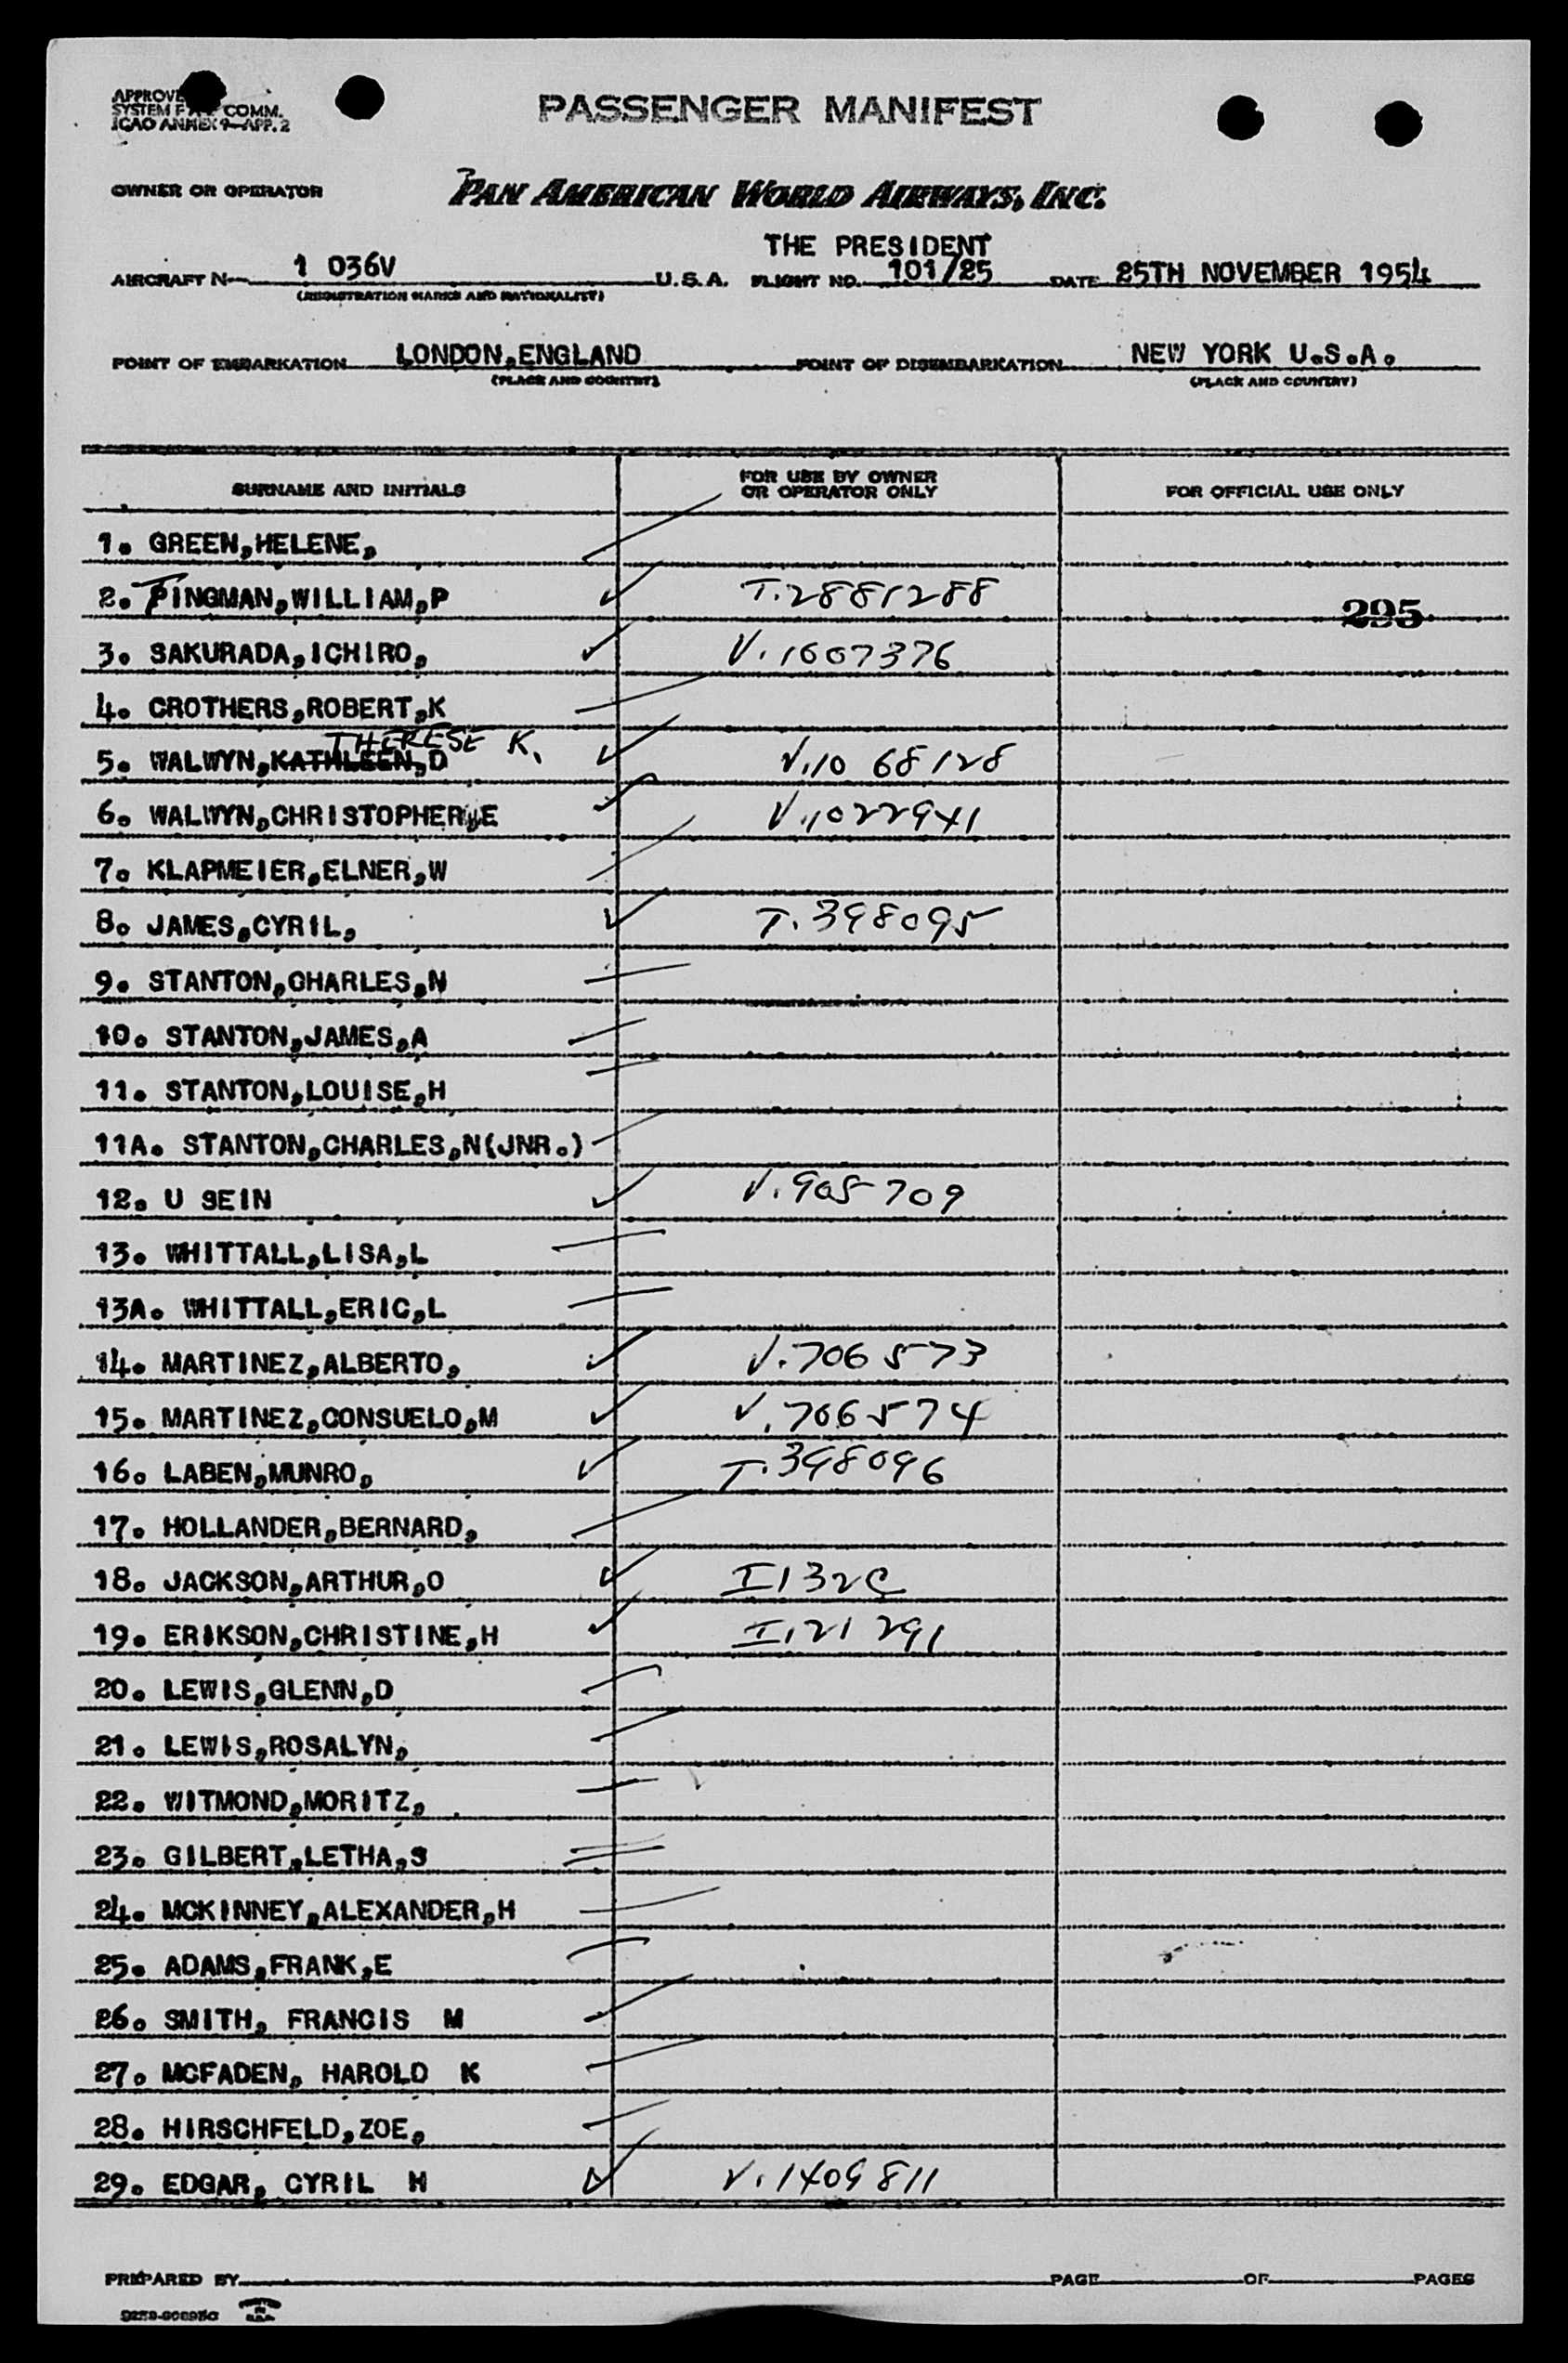 PASSENGER MANIFEST
SYSTEM COMM.
ICAO ANNEX 9—APP. 2
OWNER OR OPERATOR PAN AMERICAN WORLD AIRWAYS, INC.
THE PRESIDENT
AIRCRAFT N 1 036V U.S.A. FLIGHT NO. 101/25 DATE 25TH NOVEMBER 1954
(REGISTRATION MARKS AND NATIONALITY)
POINT OF EMBARKATION LONDON,ENGLAND POINT OF DISEMBARKATION NEW YORK U.S.A.
(PLACE AND COUNTRY) (PLACE AND COUNTRY)
SURNAME AND INITIALS FOR USE BY OWNER OR OPERATOR ONLY FOR OFFICIAL USE ONLY
1. GREEN,HELENE,
2. TINGMAN,WILLIAM,P T.2881288 295
3. SAKURADA,ICHIRO, V.1607376
4. CROTHERS,ROBERT,K
THERESE K.
5. WALWYN,KATHLEEN,D V.1068128
6. WALWYN,CHRISTOPHER,E V.1022941
7. KLAPMEIER,ELNER,W
8. JAMES,CYRIL, T.398095
9. STANTON,CHARLES,N
10. STANTON,JAMES,A
11. STANTON,LOUISE,H
11A. STANTON,CHARLES,N(JNR.)
12. U SEIN V.905709
13. WHITTALL,LISA,L
13A. WHITTALL,ERIC,L
14. MARTINEZ,ALBERTO, V.706573
15. MARTINEZ,CONSUELO,M V.706574
16. LABEN,MUNRO, T.398096
17. HOLLANDER,BERNARD,
18. JACKSON,ARTHUR,O I132C
19. ERIKSON,CHRISTINE,H I.121291
20. LEWIS,GLENN,D
21. LEWIS,ROSALYN,
22. WITMOND,MORITZ,
23. GILBERT,LETHA,S
24. MCKINNEY,ALEXANDER,H
25. ADAMS,FRANK,E
26. SMITH, FRANCIS M
27. MCFADEN, HAROLD K
28. HIRSCHFELD,ZOE,
29. EDGAR, CYRIL H V.1409811
PREPARED BY PAGE OF PAGES